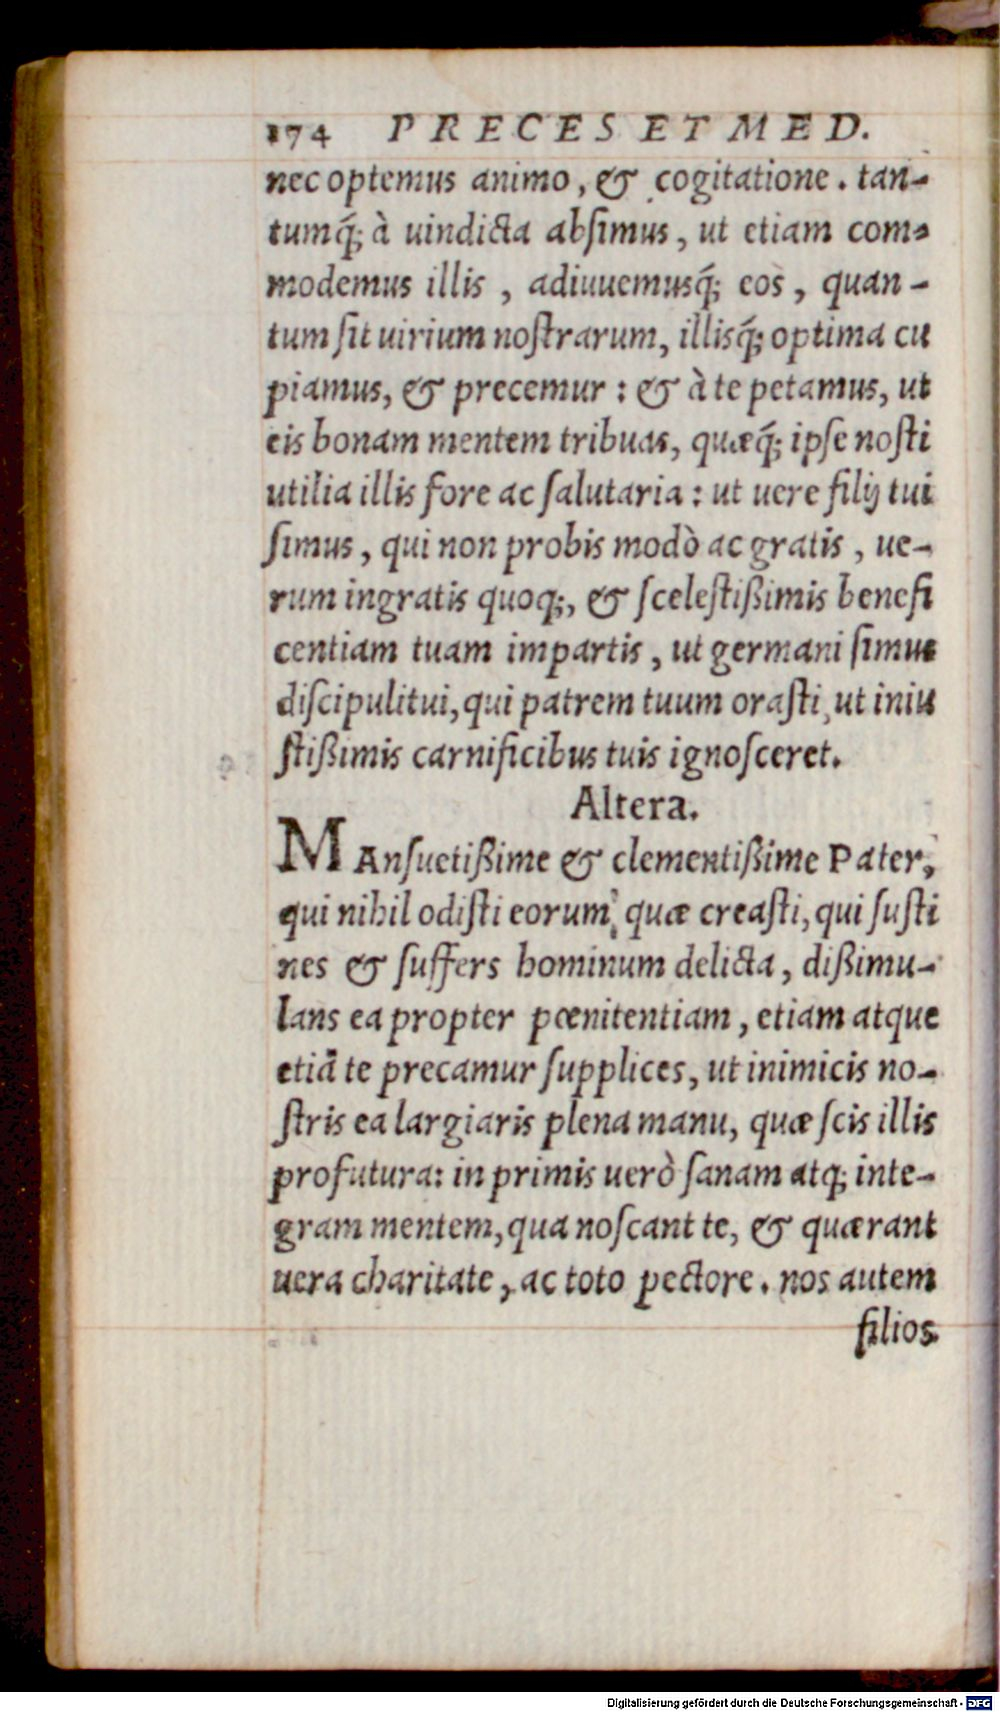 174 PRECES ET MED.
nec optemus animo, & cogitatione. tan-
tumq́; à uindicta absimus, ut etiam com-
modemus illis, adiuuemusq́; eos, quan-
tum sit uirium nostrarum, illisq́; optima cu
piamus, & precemur: & à te petamus, ut
eis bonam mentem tribuas, quæq́; ipse nosti
utilia illis fore ac salutaria: ut uere filij tui
simus, qui non probis modò ac gratis, ue-
rum ingratis quoq;, & scelestißimis benefi
centiam tuam impartis, ut germani simus
discipuli tui, qui patrem tuum orasti, ut iniu
stißimis carnificibus tuis ignosceret.
Altera.
MAnsuetißime & clementißime Pater,
qui nihil odisti eorum, quæ creasti, qui susti
nes & suffers hominum delicta, dißimu-
lans ea propter pœnitentiam, etiam atque
etiã te precamur supplices, ut inimicis no-
stris ea largiaris plena manu, quæ scis illis
profutura: in primis uerò sanam atq; inte-
gram mentem, qua noscant te, & quærant
uera charitate, ac toto pectore. nos autem
filios
Digitalisierung gefördert durch die Deutsche Forschungsgemeinschaft - DFG